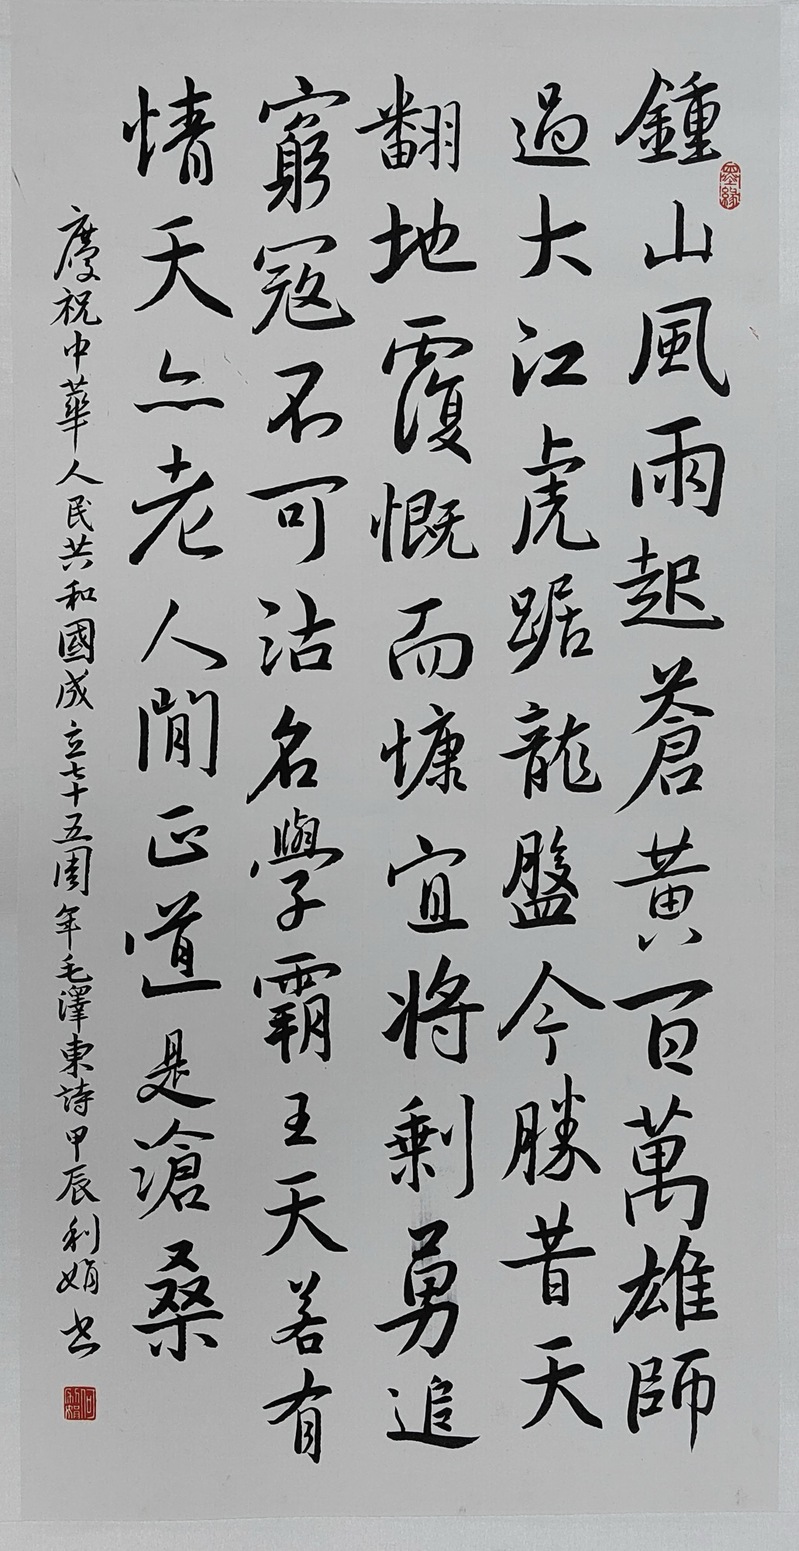 鍾山風雨起蒼黃百萬雄師
墨緣
過大江虎踞龍盤今勝昔天
翻地覆慨而慷宜將剩勇追
窮寇不可沽名學霸王天若有
情天亦老人間正道是滄桑
慶祝中華人民共和國成立七十五周年毛澤東詩甲辰利娟书
何利娟